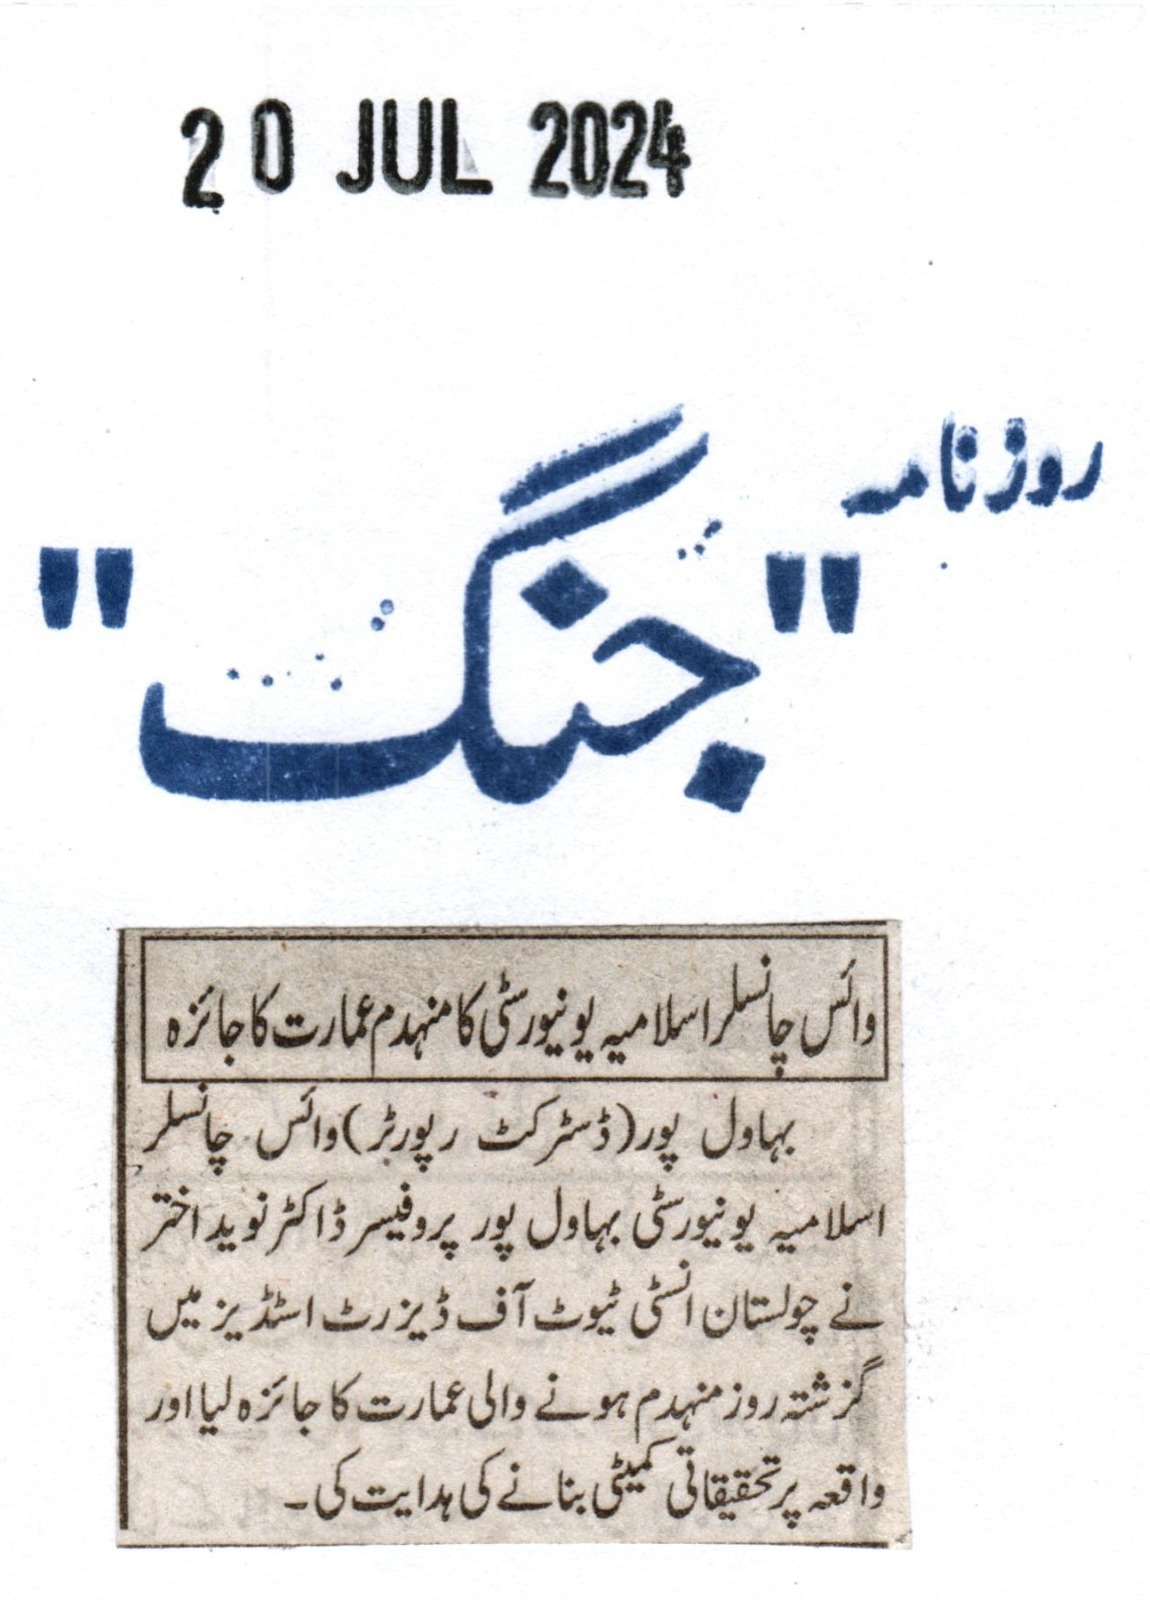 20 JUL 2024
روزنامہ
"جنگ"
وائس چانسلر اسلامیہ یونیورسٹی کا منہدم عمارت کا جائزہ
بہاول پور (ڈسٹرکٹ رپورٹر) وائس چانسلر
اسلامیہ یونیورسٹی بہاول پور پروفیسر ڈاکٹر نوید اختر
نے چولستان انسٹی ٹیوٹ آف ڈیزرٹ اسٹڈیز میں
گزشتہ روز منہدم ہونے والی عمارت کا جائزہ لیا اور
واقعہ پر تحقیقاتی کمیٹی بنانے کی ہدایت کی۔